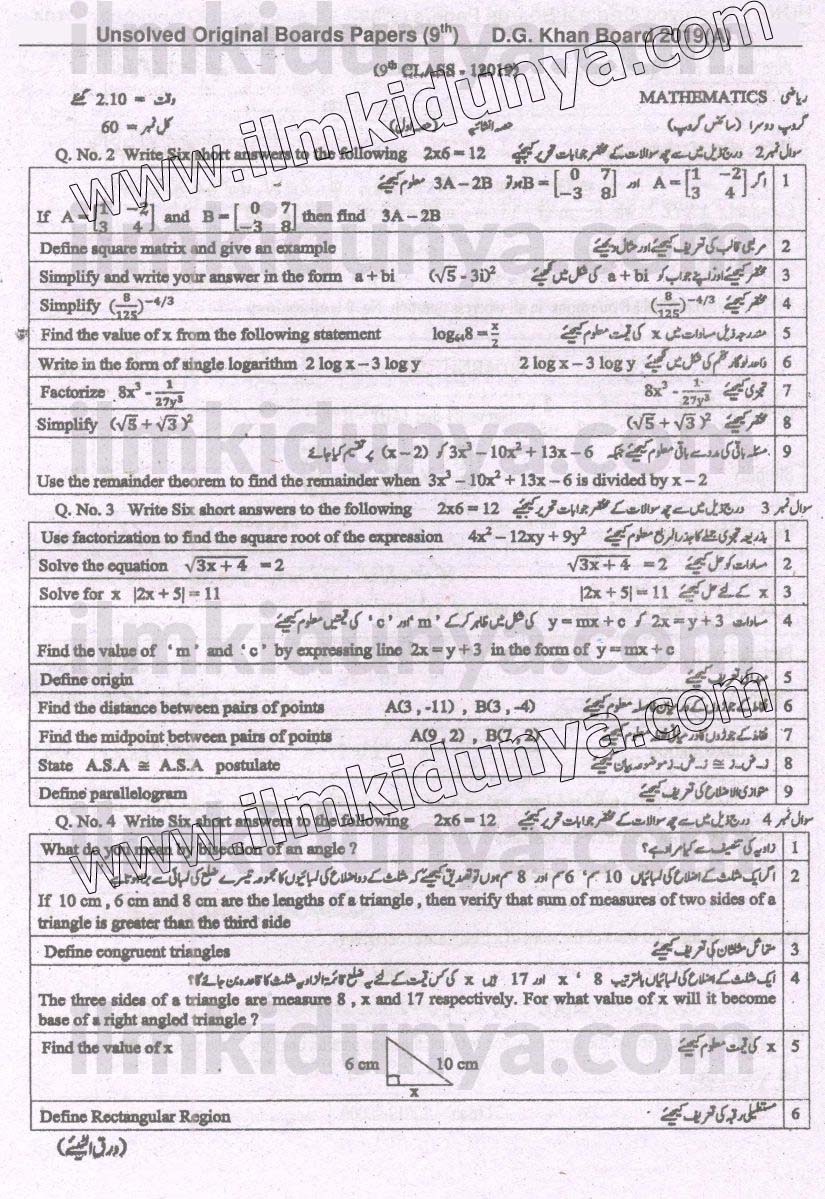 Unsolved Original Boards Papers (9th) D.G. Khan Board 2019(A)
(9th CLASS - 12019)
MATHEMATICS ریاضی وقت = 2.10 گھنٹے
گروپ دوسرا (سائنس گروپ) حصہ انشائیہ (حصہ اول) کل نمبر = 60
Q. No. 2 Write Six short answers to the following 2x6 = 12 سوال نمبر 2 درج ذیل میں سے چھ سوالات کے مختصر جوابات تحریر کیجئیے
1 اگر A = [1 -2 / 3 4] اور B = [0 7 / -3 8] ہو تو 3A – 2B معلوم کیجئیے
If A = [1 -2 / 3 4] and B = [0 7 / -3 8] then find 3A – 2B
Define square matrix and give an example مربعی قالب کی تعریف کیجئیے اور مثال دیجئیے 2
Simplify and write your answer in the form a + bi (√5 - 3i)² مختصر کیجئیے اور اپنے جواب کو a + bi کی شکل میں لکھیئے 3
Simplify (8/125)^-4/3 مختصر کیجئیے (8/125)^-4/3 4
Find the value of x from the following statement log₆₄8 = x/2 مندرجہ ذیل مساوات میں x کی قیمت معلوم کیجئیے 5
Write in the form of single logarithm 2 log x – 3 log y 2 log x – 3 log y 6
Factorize 8x³ - 1/27y³ تجزی کیجئیے 8x³ - 1/27y³ 7
Simplify (√5 + √3 )² مختصر کیجئیے (√5 + √3 )² 8
9 مسئلہ باقی کی مدد سے باقی معلوم کیجئیے جبکہ 3x³ – 10x² + 13x – 6 کو (x – 2) پر تقسیم کیا جائے
Use the remainder theorem to find the remainder when 3x³ – 10x² + 13x – 6 is divided by x – 2
Q. No. 3 Write Six short answers to the following 2x6 = 12 سوال نمبر 3 درج ذیل میں سے چھ سوالات کے مختصر جوابات تحریر کیجئیے
Use factorization to find the square root of the expression 4x² – 12xy + 9y² بذریعہ تجزی جملے کا جذرالمربع معلوم کیجئیے 1
Solve the equation √3x + 4 = 2 مساوات کو حل کیجئیے √3x + 4 = 2 2
Solve for x |2x + 5| = 11 x کے لئے حل کیجئیے |2x + 5| = 11 3
4 مساوات 2x = y + 3 کو y = mx + c کی شکل میں ظاہر کر کے ' m ' اور ' c ' کی قیمتیں معلوم کیجئیے
Find the value of ' m ' and ' c ' by expressing line 2x = y + 3 in the form of y = mx + c
Define origin کی تعریف کیجئیے 5
Find the distance between pairs of points A(3 , -11) , B(3 , -4) معلوم کیجئیے 6
Find the midpoint between pairs of points A(9 , 2) , B(7, -2) معلوم کیجئیے 7
State A.S.A ≅ A.S.A postulate بیان کیجئیے 8
Define parallelogram متوازی الاضلاع کی تعریف کیجئیے 9
Q. No. 4 Write Six short answers to the following 2x6 = 12 سوال نمبر 4 درج ذیل میں سے چھ سوالات کے مختصر جوابات تحریر کیجئیے
What do you mean by bisection of an angle ? زاویہ کی تنصیف سے کیا مراد ہے؟ 1
2 اگر ایک مثلث کے اضلاع کی لمبائیاں 10 سم ' 6 سم اور 8 سم ہوں تو تصدیق کیجئیے کہ مثلث کے دو اضلاع کی لمبائیوں کا مجموعہ تیسرے ضلع کی لمبائی سے بڑا ہوتا ہے
If 10 cm , 6 cm and 8 cm are the lengths of a triangle , then verify that sum of measures of two sides of a
triangle is greater than the third side
Define congruent triangles متماثل مثلثان کی تعریف کیجئیے 3
4 ایک مثلث کے اضلاع کی لمبائیاں بالترتیب 8 ' x اور 17 ہیں x کی کس قیمت کے لئے یہ ضلع قائمۃ الزاویہ مثلث کا قاعدہ بن جائے گا؟
The three sides of a triangle are measure 8 , x and 17 respectively. For what value of x will it become
base of a right angled triangle ?
Find the value of x x کی قیمت معلوم کیجئیے 5
6 cm 10 cm
x
Define Rectangular Region مستطیلی رقبہ کی تعریف کیجئیے 6
(ورق الٹیئے)
www.ilmkidunya.com
www.ilmkidunya.com
ilmkidunya.com
ilmkidunya.com
ilmkidunya.com
ilmkidunya.com